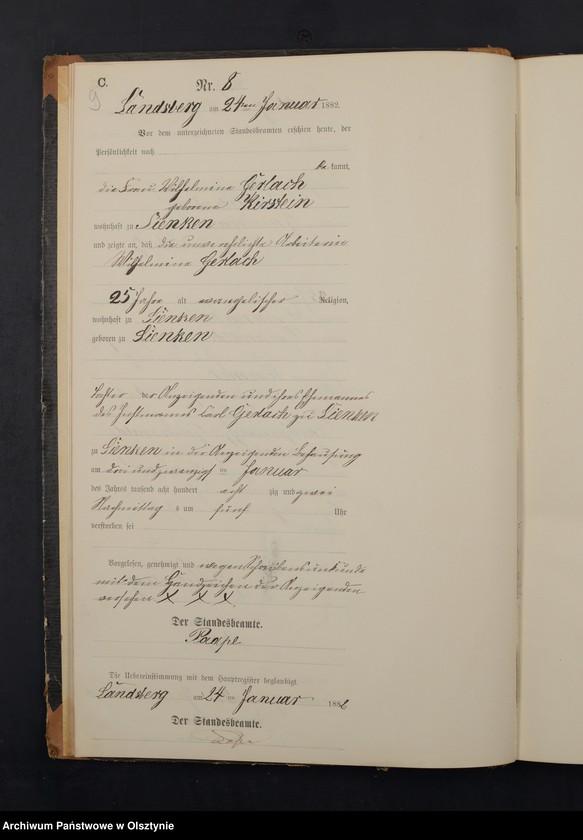 C.
9
Nr. 8
Landsberg am 24ten Januar 1882.
Vor dem unterzeichneten Standesbeamten erschien heute, der
Persönlichkeit nach
be kannt,
die Frau Wilhelmine Gerlach
geborene Kirstein
wohnhaft zu Sienken
und zeigte an, daß die unverehelichte Arbeiterin
Wilhelmine Gerlach
25 Jahre alt evangelischer Religion,
wohnhaft zu Sienken
geboren zu Sienken
Tochter der Anzeigenden und ihres Ehemannes
des Carl Gerlach zu Sienken
zu Sienken in der Anzeigenden Behausung
am drei und zwanzigsten Januar
des Jahres tausend acht hundert acht zig und zwei
Nachmittag s um fünf Uhr
verstorben sei
Vorgelesen, genehmigt und wegen Schreibensunkunde
mit dem Handzeichen der Anzeigenden
versehen X X X
Der Standesbeamte.
Die Uebereinstimmung mit dem Hauptregister beglaubigt
Landsberg am 24 ten Januar 1882
Der Standesbeamte.
Archiwum Państwowe w Olsztynie